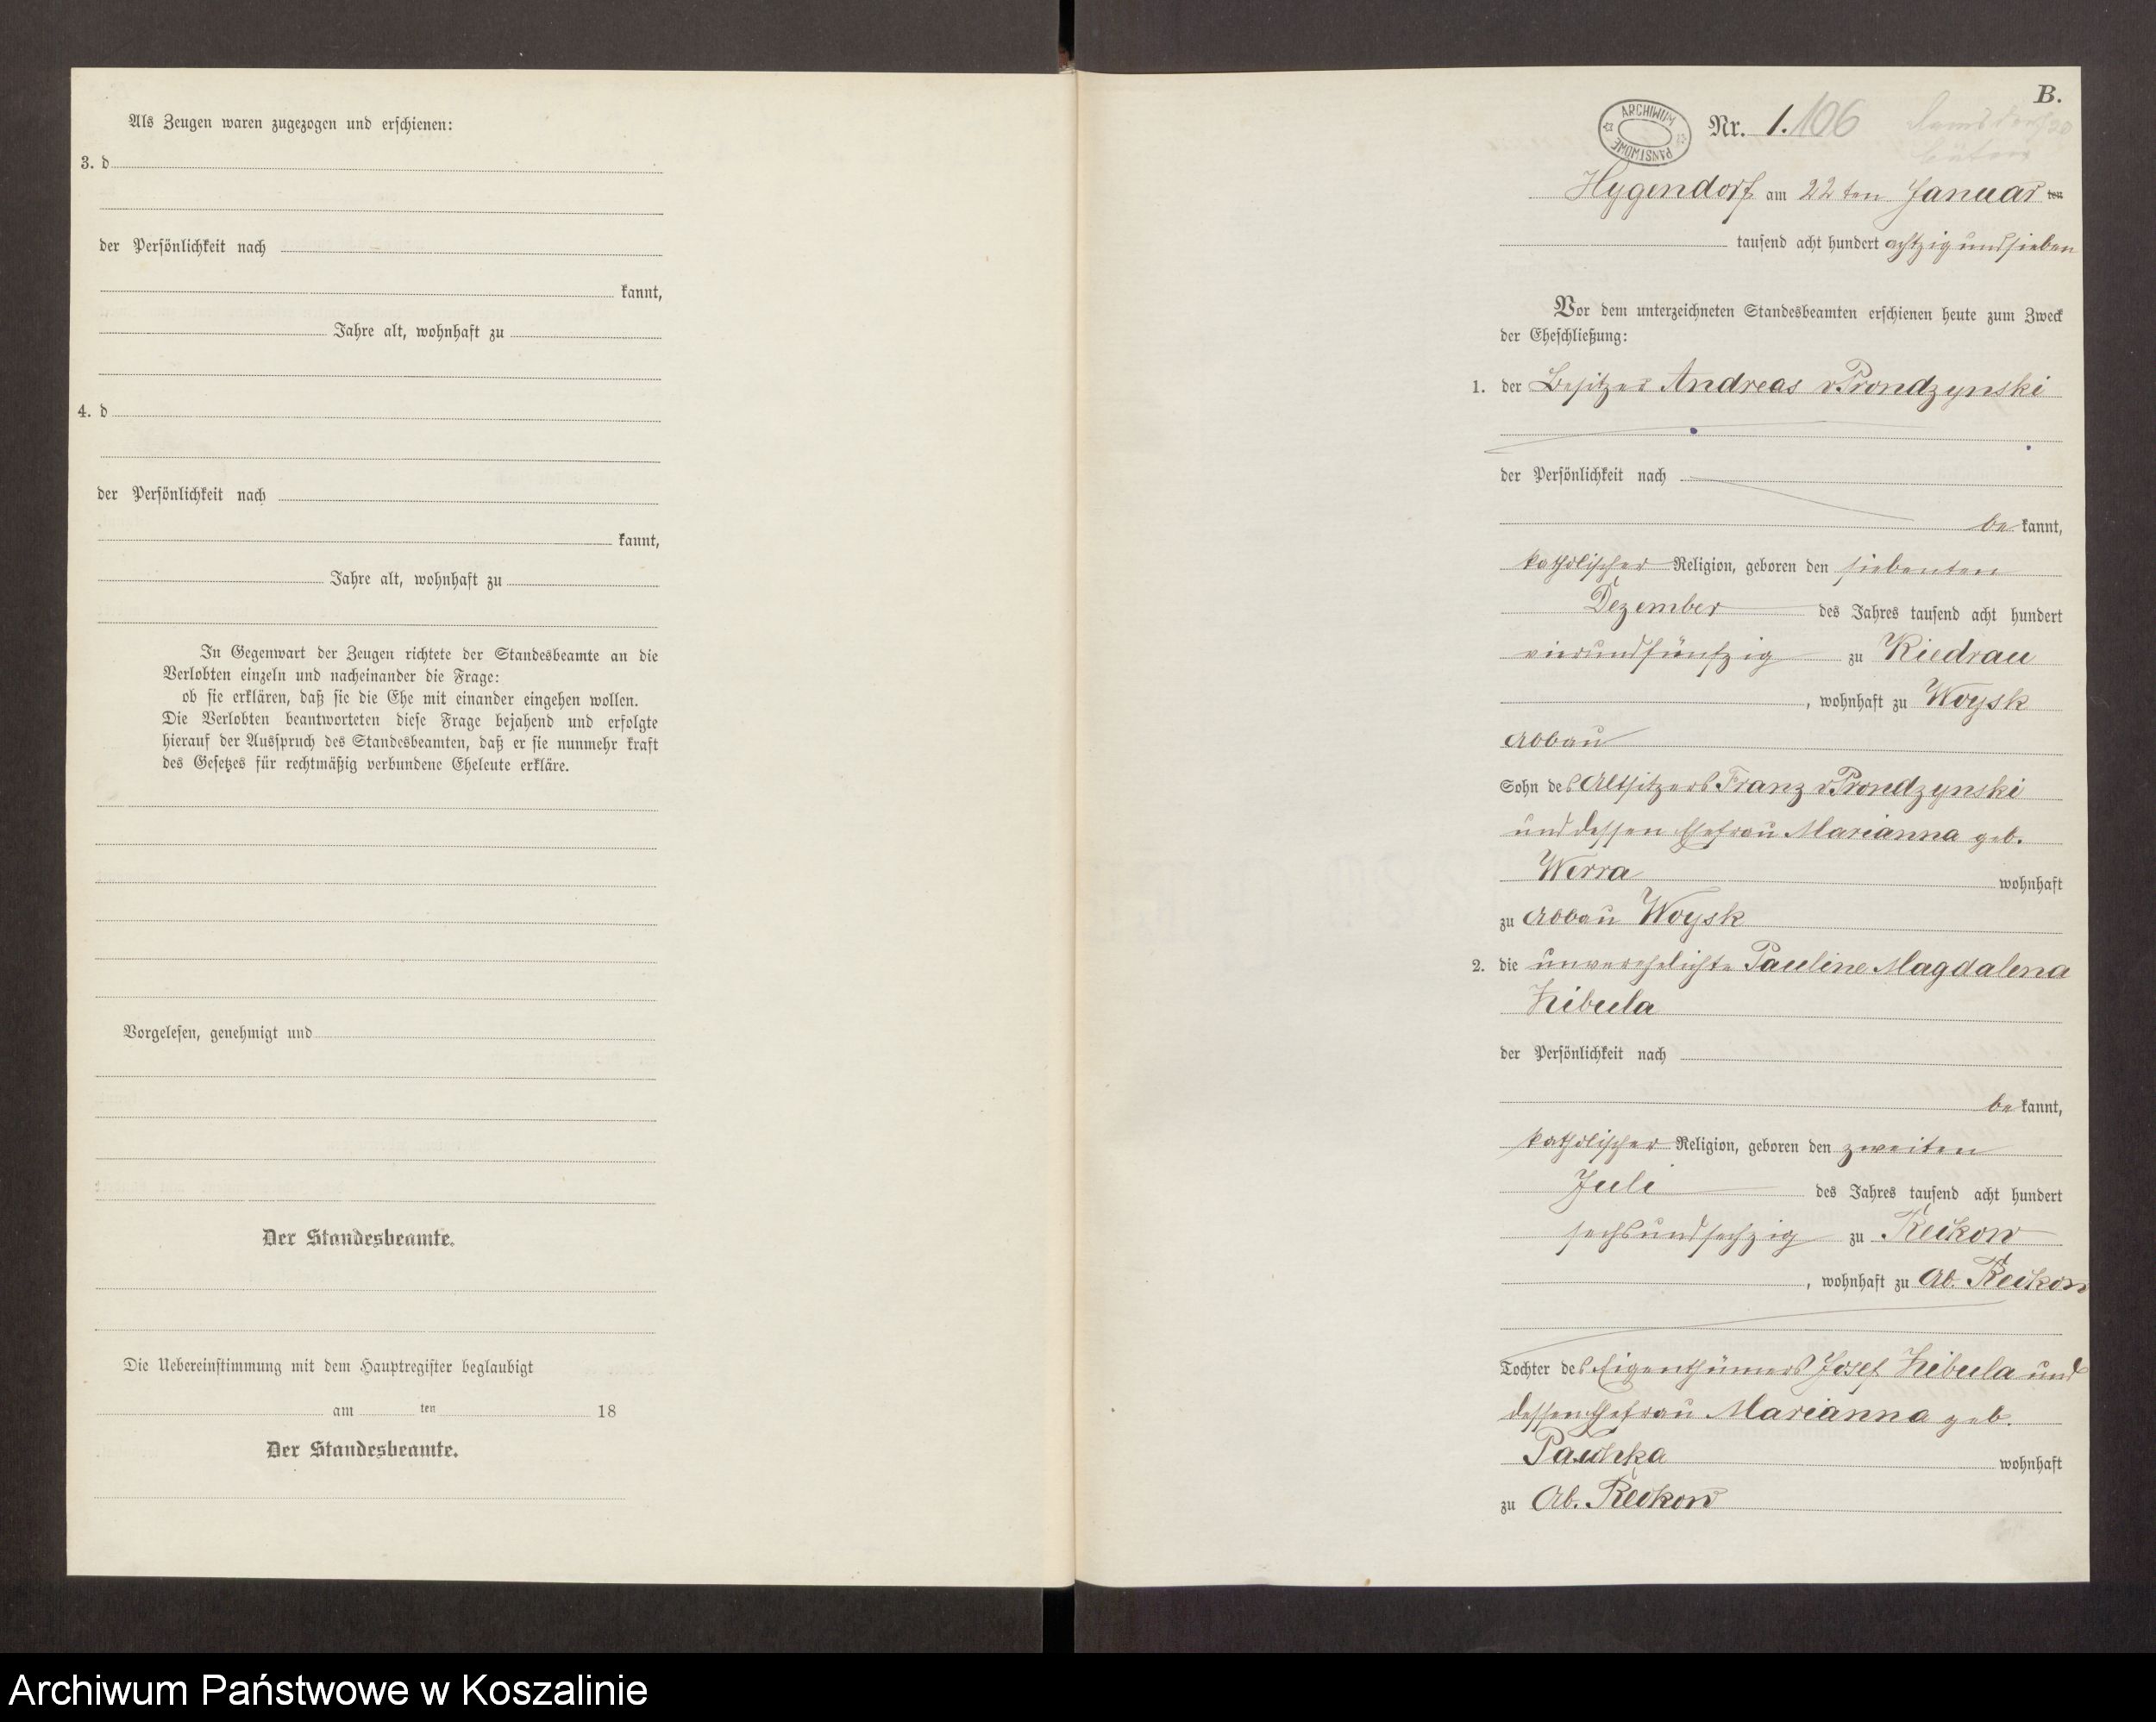 Als Zeugen waren zugezogen und erschienen:
3. d
der Persönlichkeit nach
kannt,
Jahre alt, wohnhaft zu
4. d
der Persönlichkeit nach
kannt,
Jahre alt, wohnhaft zu
In Gegenwart der Zeugen richtete der Standesbeamte an die
Verlobten einzeln und nacheinander die Frage:
ob sie erklären, daß sie die Ehe mit einander eingehen wollen.
Die Verlobten beantworteten diese Frage bejahend und erfolgte
hierauf der Ausspruch des Standesbeamten, daß er sie nunmehr kraft
des Gesetzes für rechtmäßig verbundene Eheleute erkläre.
Vorgelesen, genehmigt und
Der Standesbeamte.
Die Uebereinstimmung mit dem Hauptregister beglaubigt
am ten 18
Der Standesbeamte.
B.
ARCHIWUM PAŃSTWOWE
Nr. 1. 106
Hygendorf am 22ten Januar ten
tausend acht hundert achtzig und sieben
Vor dem unterzeichneten Standesbeamten erschienen heute zum Zweck
der Eheschließung:
1. der Besitzer Andreas v Prondzynski
der Persönlichkeit nach
be kannt,
katholischer Religion, geboren den siebenten
Dezember des Jahres tausend acht hundert
vierundfünfzig zu Kiedrau
, wohnhaft zu Woysk
Abbau
Sohn des Altsitzers Franz v Prondzynski
und dessen Ehefrau Marianna geb.
Werra wohnhaft
zu Abbau Woysk
2. die unverehelichte Pauline Magdalena
Zibula
der Persönlichkeit nach
be kannt,
katholischer Religion, geboren den zweiten
Juli des Jahres tausend acht hundert
sechsundsechzig zu Reckow
, wohnhaft zu Ab. Reckow
Tochter des Eigenthümers Josef Zibula und
dessen Ehefrau Marianna geb.
wohnhaft
zu Ab. Reckow
Archiwum Państwowe w Koszalinie